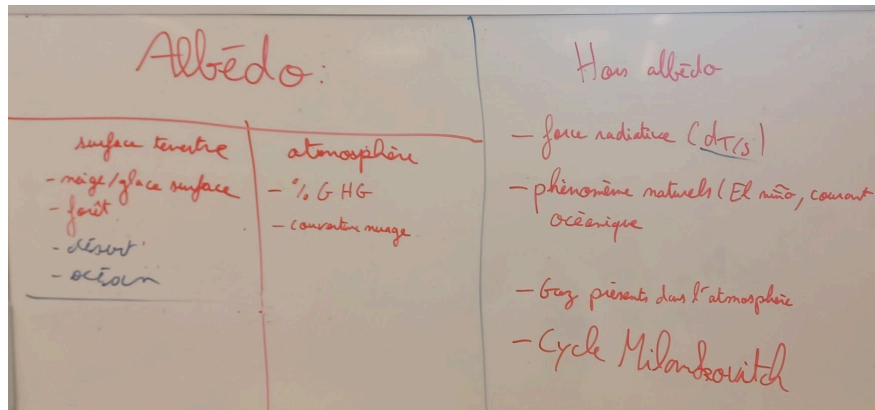 Albédo:
surface terrestre
- neige/glace surface
- forêt
- désert
- océan
atmosphère
- % GHG
- couverture nuage
Hors albédo
- force radiative (dT/S)
- phénomène naturels (El niño, courant
océanique
- Gaz présents dans l'atmosphère
- Cycle Milankovitch